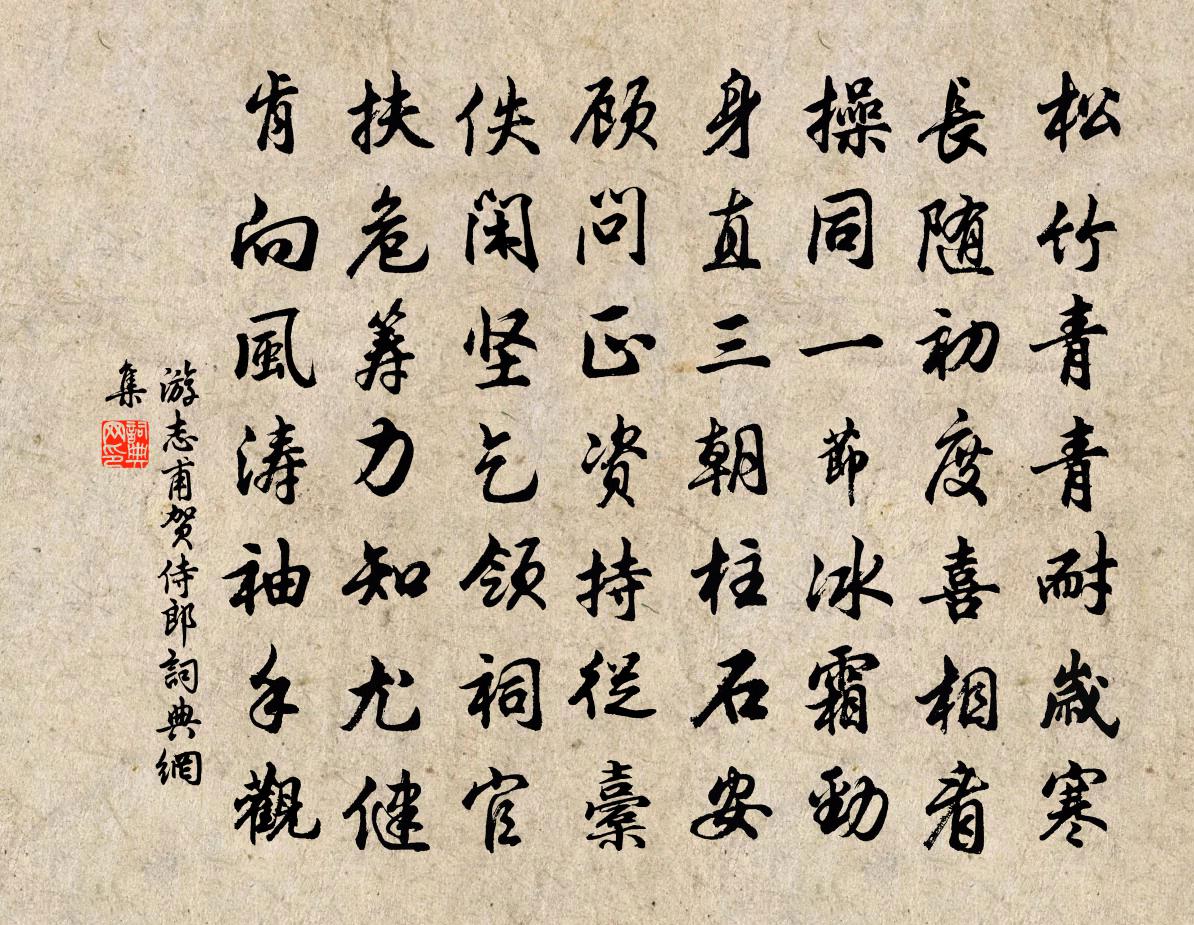 松竹青青耐歲寒
長随初度喜相看
操同一節冰霜勁
身直三朝柱石安
顾問正资持從橐
佚闲坚乞领祠官
扶危筹力知尤健
肯向風涛袖手觀
游志甫贺侍郎詞典網
集
詞典网印